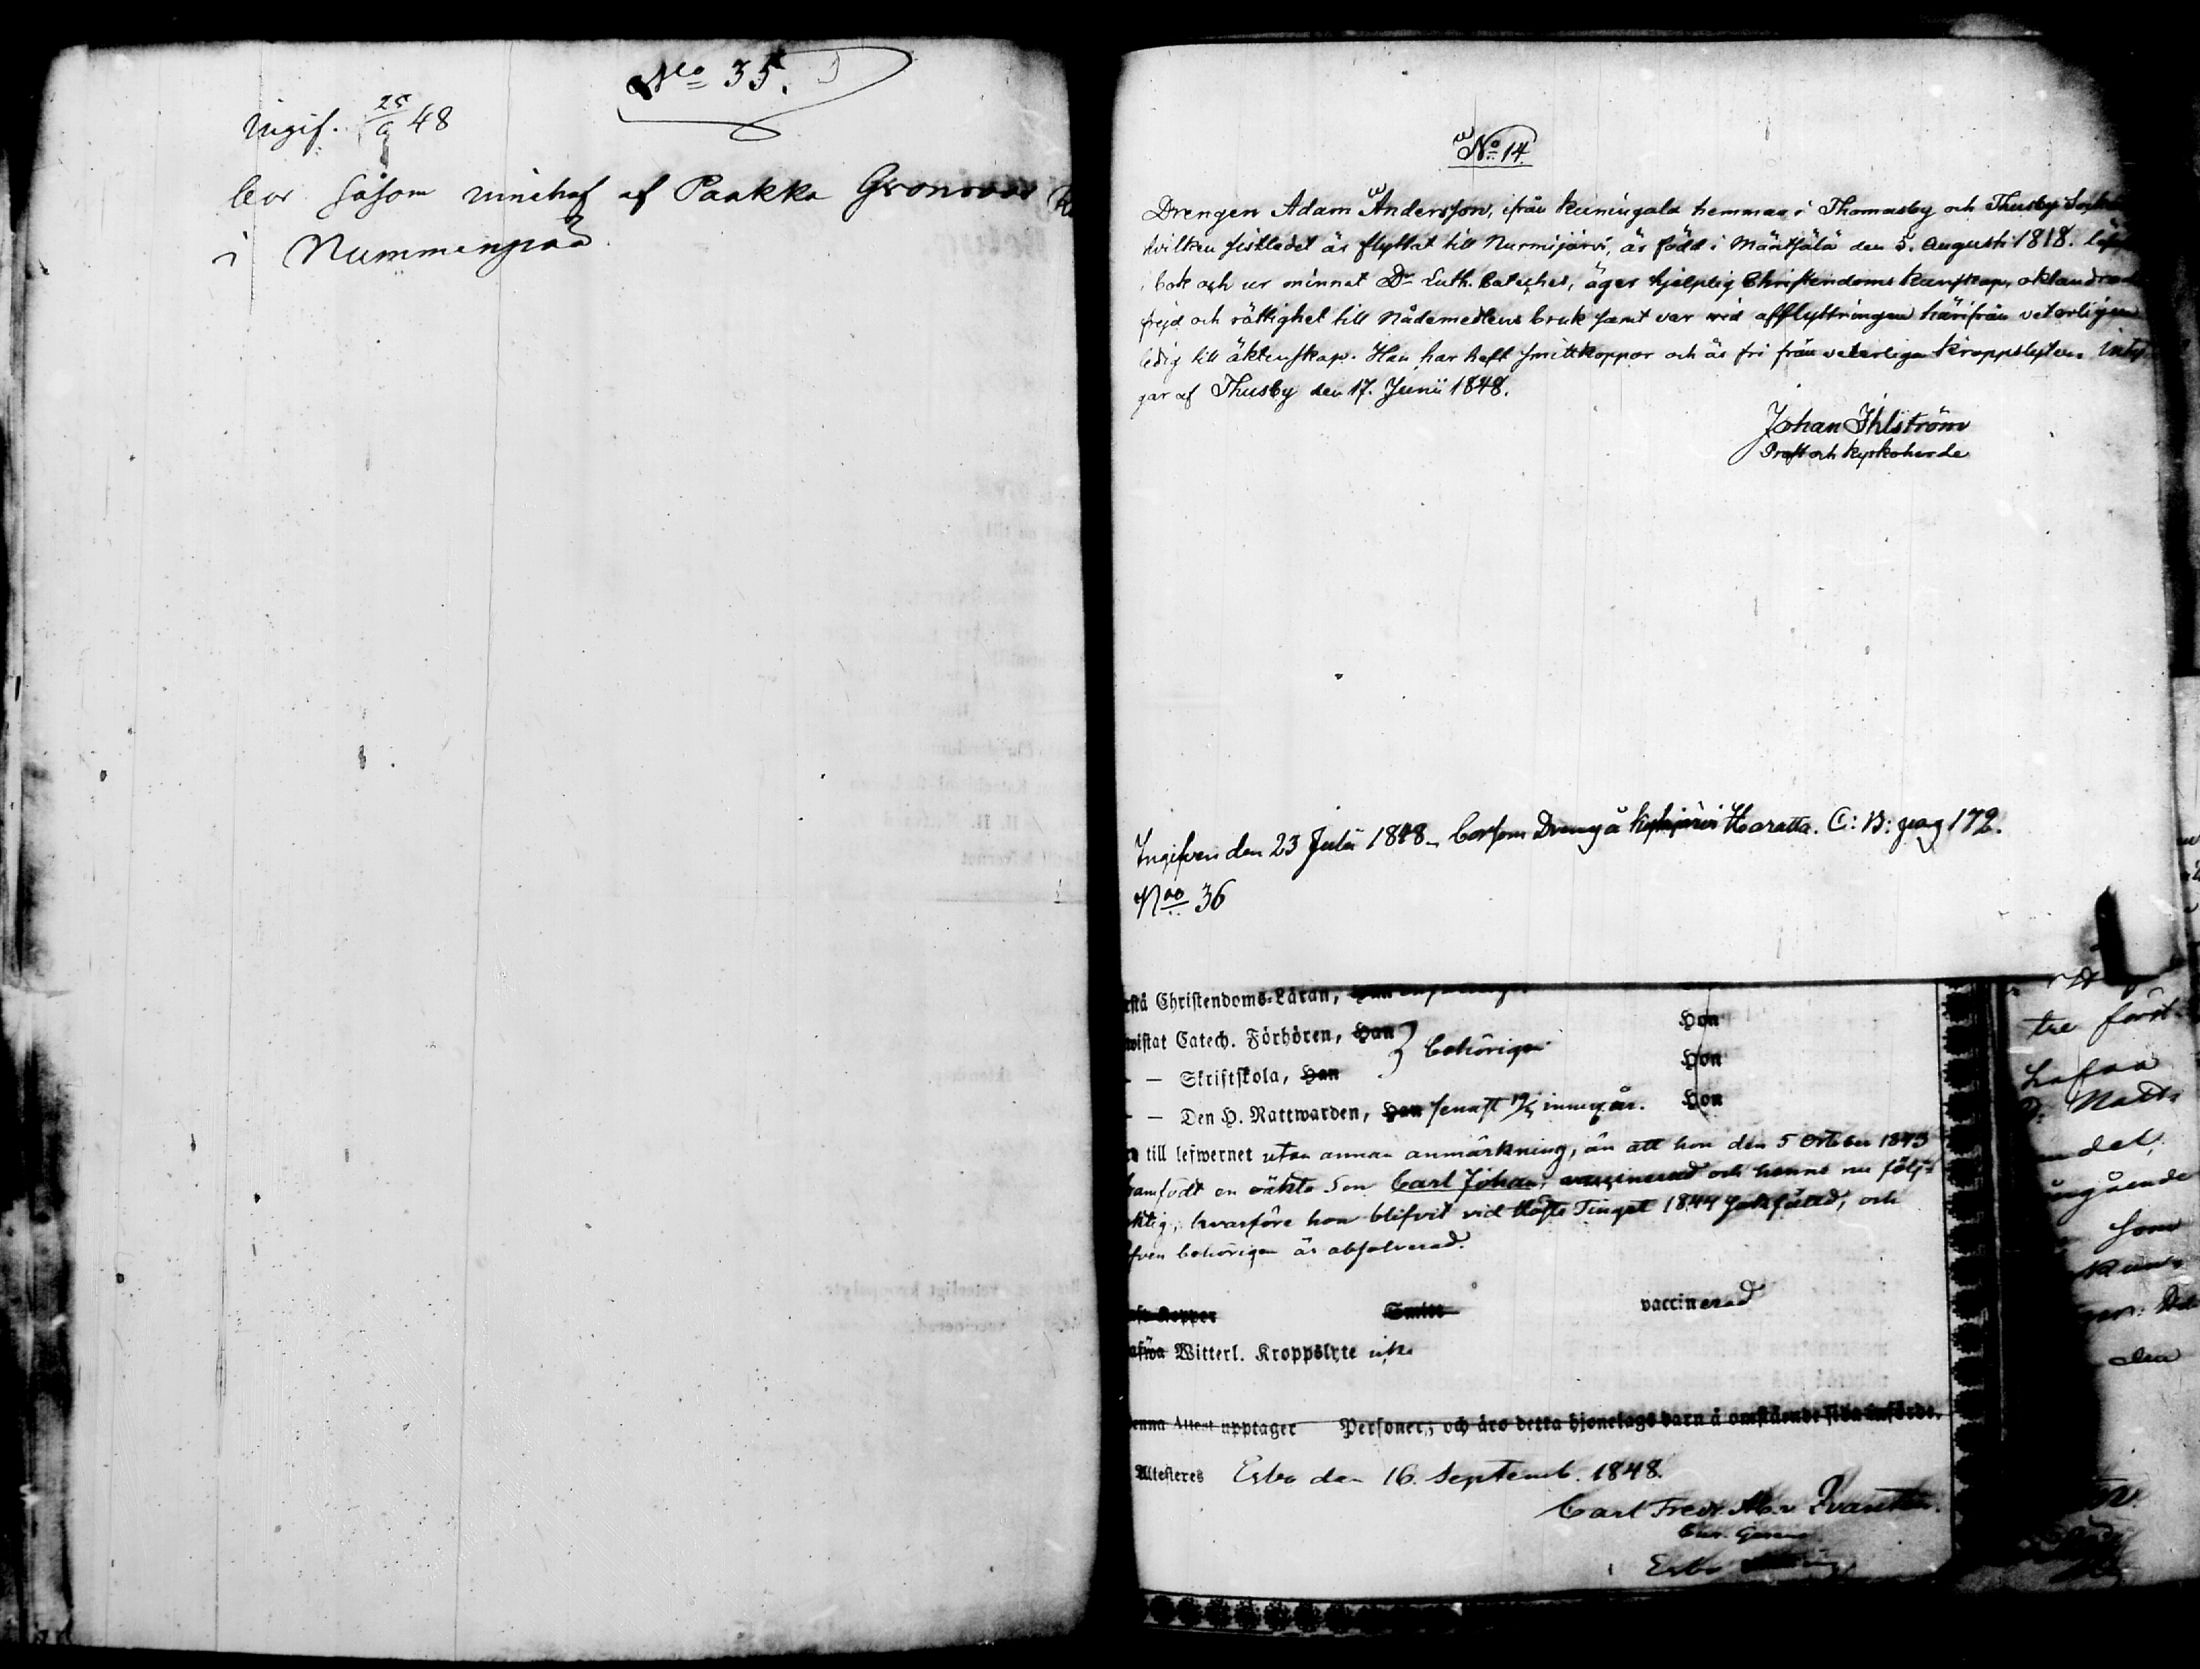 No 35.
Ingif. 25/9 48
bor såsom inneh af Paakka Gronroos
i Nummenpää
No 14
Drengen Adam Andersson, ifrån Kuningala hemman i Thomasby och Thusby Sock
hvilken sistledet är flyttat till Nurmijärvi, är född i Määtsälä den 5. Augusti 1818. läser
i bok och ur minnet Dr Luth. Cateches, äger hjelplig Christendoms kunskap, oklandrad
frejd och rättighet till Nådemedlens bruk samt var vid afflyttningen härifrån veterligen
ledig till äktenskap. Han har haft smittkoppor och är fri från veterliga kroppslyten. Inty
gar af Thusby den 17. Junii 1848.
Johan Ihlström
Prost och Kyrkoherde
Ingifven den 23 Julii 1848. bor som Dreng å Haratta. C: B: pag 172.
Noo 36
stå Christendoms-Läran,
wistat Catech. Förhören, Han } behörigen Hon
— — Skriftskola, Han Hon
— — Den H. Nattwarden, Han senast innev. år. Hon
till lefwernet utan annan anmärkning, än att hon den 5 October 1843
framfödt en oäkta Son Carl Johan, vaccinerad och henne nu följ-
aktig, hvarföre hon blifvit vid Höste Tinget 1844 sakfälld, och
äfven behörigen är absolverad.
Koppor Smitt vaccinerad
Witterl. Kroppslyte icke
enna Attest upptager Personer; och äro detta hjonelags barn å omstående sida införde.
Attesteres Esbo den 16. Septemb. 1848.
Carl Fredr.
Esbo
tre först
Nattv
del,
ångående
som
den